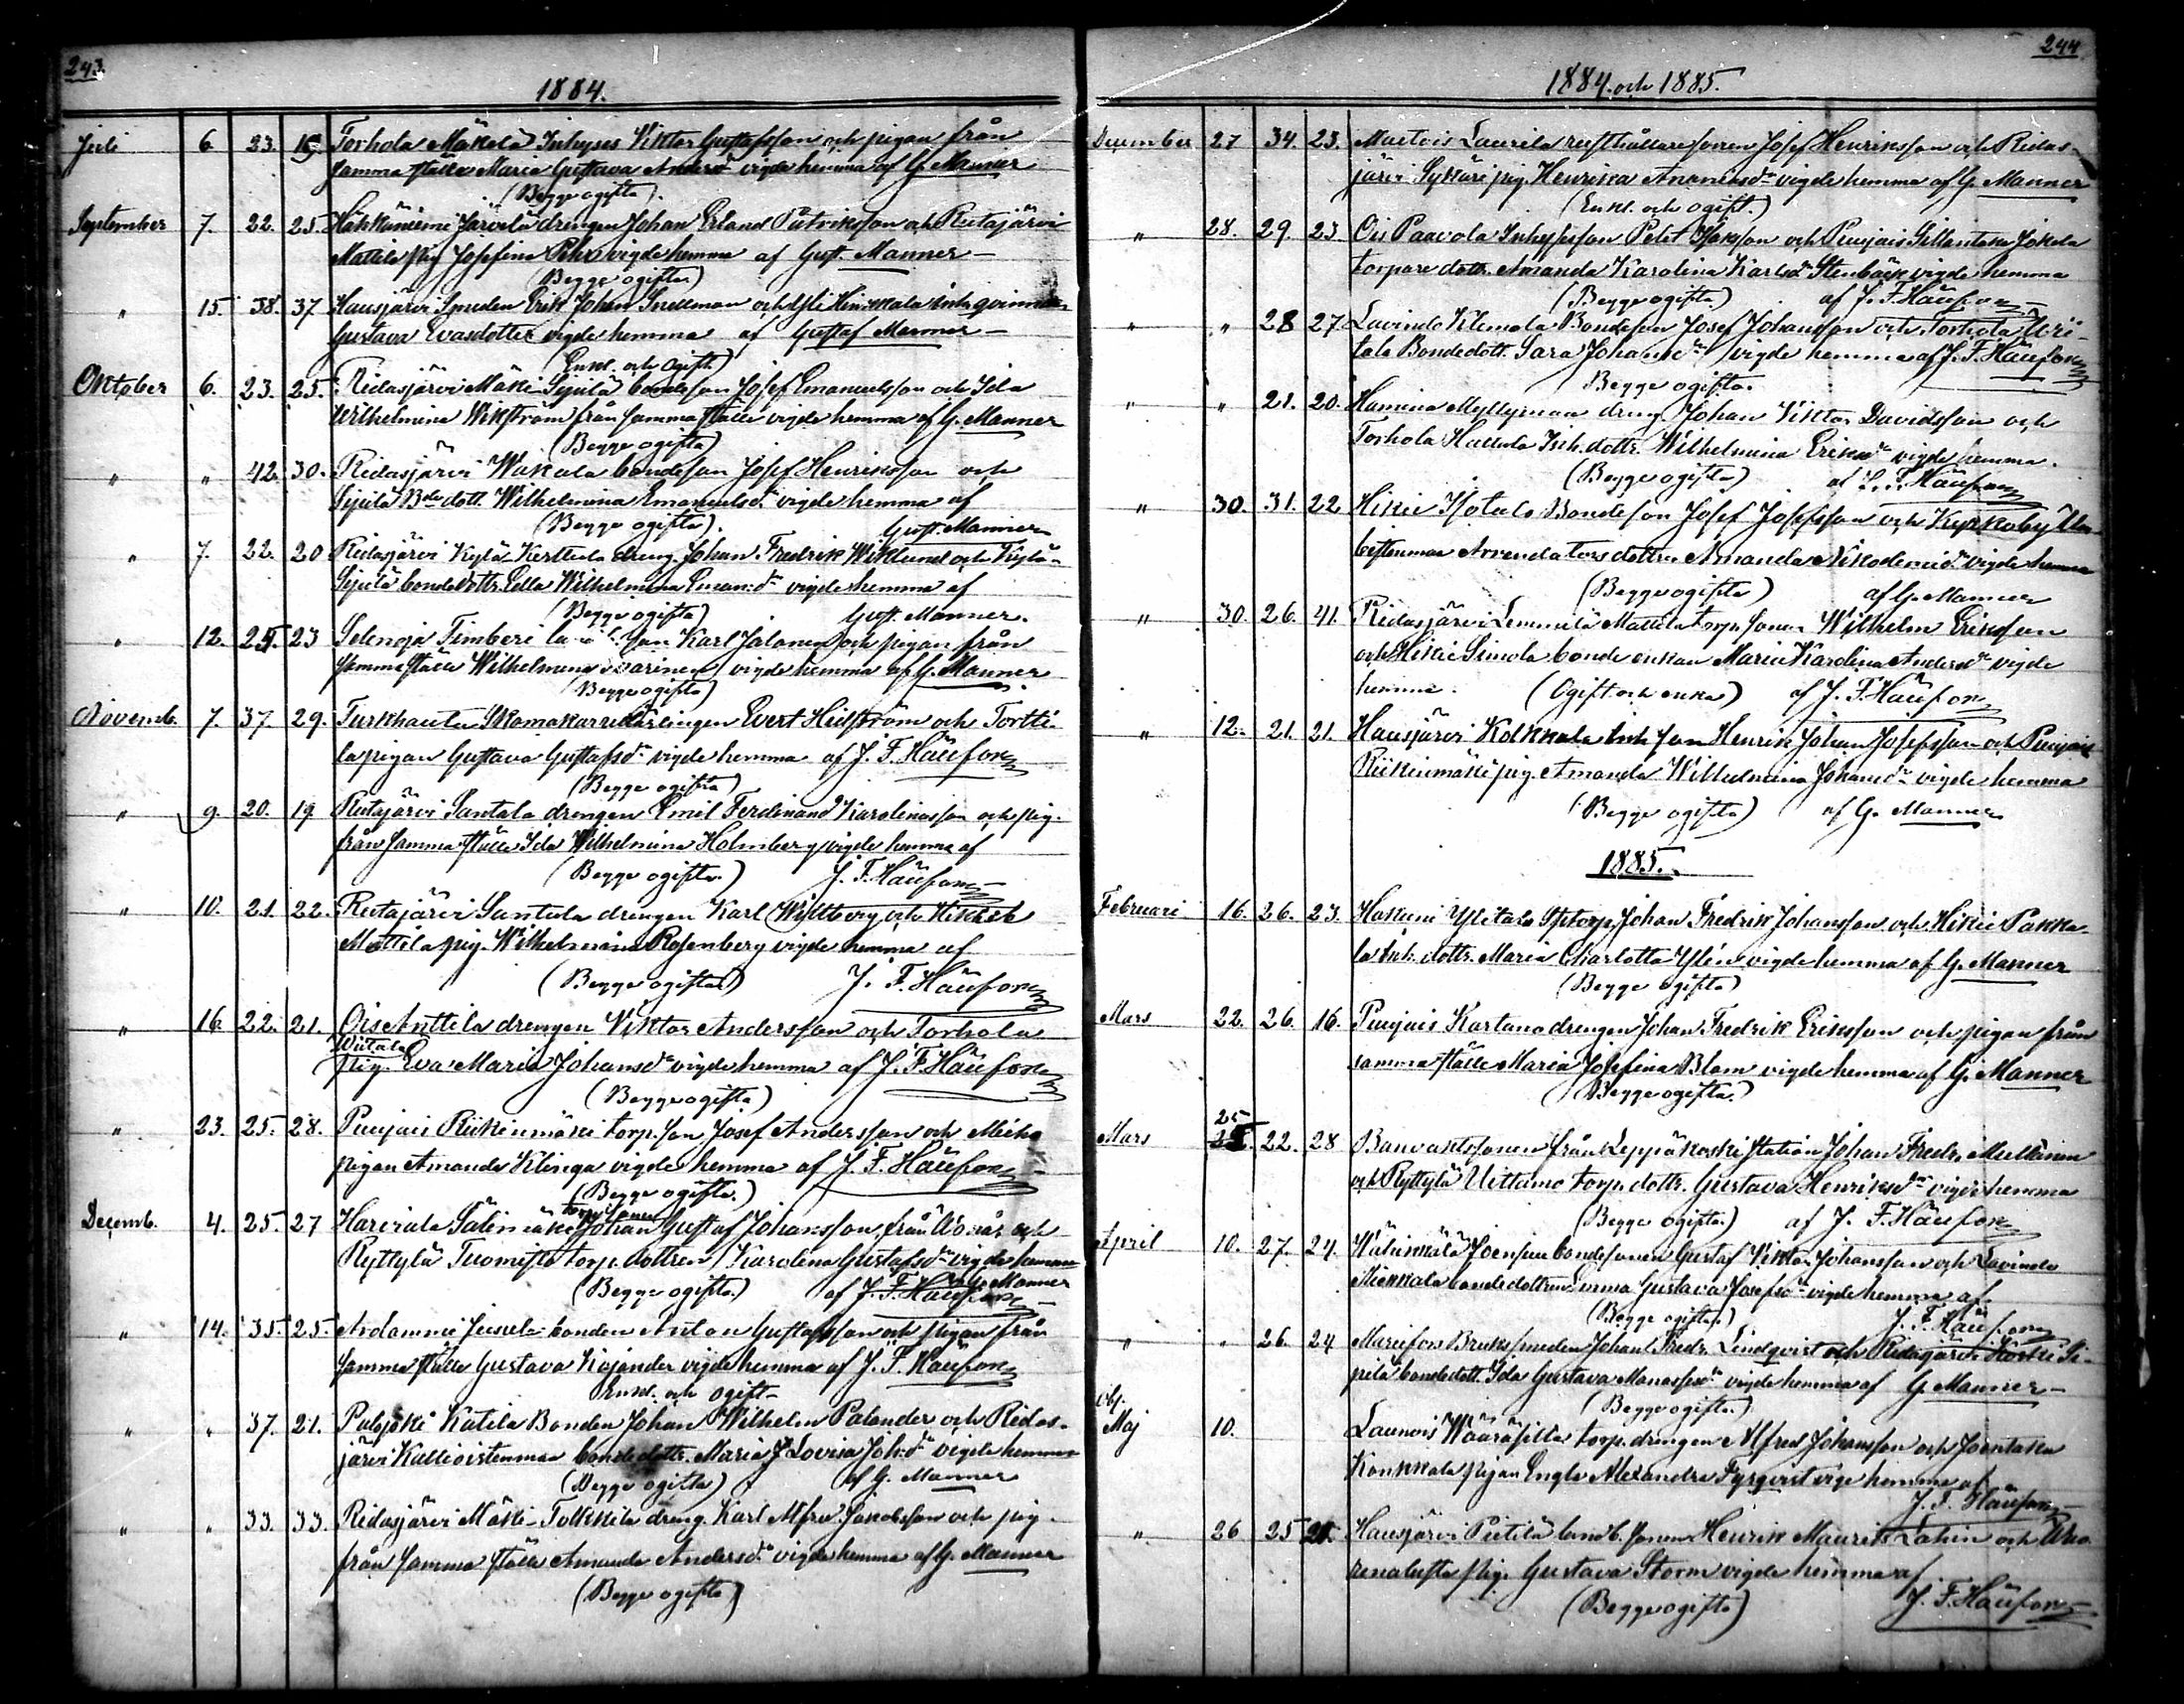 243.
1884.
Juli 6 23. 19. Torhola Mäkelä Inhyses Viktor Gustafsson och pigan från
samma ställe Maria Gustava Andersdr vigde hemma af G. Manner
(Begge ogifta).
September 7. 22. 25. Järvelä drengen Johan Erland och Ridasjärvi
Mattila pig. Josefina vigde hemma af Gust. Manner
(Begge ogifta)
" 15. 38. 37 Hausjärvi Smeden Erik Johan Snellman och inh. qvinnan
Gustava Evasdotter vigde hemma af Gustaf Manner
Enkl. och Ogift
Oktober 6. 23. 25. Ridasjärvi Mäki Sipilä bondeson Josef Emanuelsson och Ida
Wilhelmina Wikström från samma ställe vigde hemma af G. Manner
(Begge ogifta)
" " 42. 30. Ridasjärvi Wakala bondeson Josef Henriksson och
Sipilä Bde dott. Wilhelmina Emanuelsdr vigde hemma af
(Begge ogifta). Gust. Manner
" 7. 22. 20 Ridasjärvi Kylä Kerttula dreng. Johan Fredrik Wiklund och Kylä-
Sipilä bonde dottr. Wilhelmina Eman.dr vigde hemma af
(Begge ogifta) Gust. Manner.
" 12. 25. 23 Selenoja Timberi son Karl Jalonen och pigan från
samma ställe Wilhelmina vigde hemma af G. Manner
(Begge ogifta)
Novemb. 7. 37. 29. Turkhauta Skomakarelärlingen Evert Hidström och Tortti-
la pigan Gustava Gustafsdr vigde hemma af J. F. Häufors
(Begge ogifta)
" 9. 20. 19 Ridasjärvi Santala drengen Emil Ferdinand Karolinasson och pig.
från samma ställe Ida Wilhelmina Holmberg vigde hemma af
(Begge ogifta.) J. F. Häufors
" 10. 21. 22. Ridasjärvi Santala drengen Karl Willberg och Hikiä
Mattila pig. Wilhelmina Rosenberg vigde hemma af
(Begge ogifta) J. F. Häufors
" 16. 22. 21. Ois Anttila drengen Viktor Andersson och Torhola
Wiitala
pig. Eva Maria Johansdr vigde hemma af J. F. Häufors
(Begge ogifta)
" 23. 25. 28. Puujais Riikinmäki torp. son Josef Andersson och
pigan Amanda Klinga vigde hemma af J. F. Häufors
(Begge ogifta.)
torp. sonen
Decemb. 4. 25. 27 Johan Gustaf Johansson från och
Ryttylä Tuomisto torp. dottren Karolina Gustafsdr vigde hemma
(Begge ogifta.) af J. F. Häufors G. Manner
" 14. 35. 25. bonden Anton Gustafsson och pigan från
samma ställe Gustava Kajander vigde hemma af J. F. Häufors
Enkl. och ogift
" " 37. 21. Katila Bonden Johan Wilhelm Palander och Ridas-
järvi Kallioistenmaa bonde dottr. Maria Lovisa Joh.dr vigde hemma
(Begge ogifta) af G. Manner
" " 33. 33. Ridasjärvi Mäki-Tolkkila dreng. Karl Alfre. Jakobsson och pig.
från samma ställe Amanda Andersdr vigde hemma af G. Manner
(Begge ogifta)
244
1884. och 1885.
December 27 34. 23. Laurila rusthållaresonen Josef Henriksson och Ridas-
järvi Sykäri pig. Henrika vigde hemma af G. Manner
(Enkl. och ogift.)
" 28. 29. 23. Ois Paavola Inhyseson Petr Isakson och Puujais Jokela
torpare dottr. Amanda Karolina Karlsdr Stenbäck vigde hemma
(Begge ogifta) af J. F. Häufors
" " 28 27. Lavinto Klemola Bondeson Josef Johansson och Torhola Yli-
tala Bondedott. Sara Johansdr vigde hemma af J. F. Häufors
Begge ogifta.
" " 21. 20. Hamina Myllymaa dreng. Johan Viktor Davidsson och
Torhola Inh. dottr. Wilhelmina Eriksdr vigde hemma.
(Begge ogifta) af J. F. Häufors
" 30. 31. 22. Hikiä Isotalo Bondeson Josef Josefsson och Kyrkoby
Arrendators dottren Amanda Nikodemidr vigde hemma
(Begge ogifta) af G. Manner
" 30. 26. 41. Ridasjärvi Lemmilä Mattila torp. sonen Wilhelm Eriksson
och Hikiä Simola bonde enkan Maria Karolina Andersdr vigde
hemma. (Ogift och enka) af J. F. Häufors
" 12. 21. 21. Hausjärvi Kolkkala Inh. son Henrik Johan Josefsson och Puujais
Riikinmäki pig. Amanda Wilhelmina Johansdr vigde hemma
(Begge ogifta) af G. Manner
1885.
Februari 16. 26. 23. Ylitalo Johan Fredrik Johansson och Hikiä Pakka-
la Inh. dottr. Maria Charlotta Ylén vigde hemma af G. Manner
(Begge ogifta)
Mars 22. 26. 16. Puujais Kartano drengen Johan Fredrik Eriksson och pigan från
samma ställe Maria Josefina Blom vigde hemma af G. Manner
(Begge ogifta.)
25
Mars 22. 28 Banvaktssonen från Leppäkoski station Johan Fredr. Mulkinen
och Ryttylä Uittamo torp. dottr. Gustava Henriksdr vigde hemma
(Begge ogifta.) af J. F. Häufors
April 10. 27. 24. Wähikkälä Joensuu bondesonen Gustaf Viktor Johansson och Lavinto
bonde dottren Emma Gustava Josefsdr vigde hemma af
(Begge ogifta.) J. F. Häufors
" " 26. 24 Mariefors Bruks smeden Johan Fredr. Lindqvist och Ridasjärvi Si-
pilä bondedott. Ida Gustava Manassedr vigde hemma af G. Manner
(Begge ogifta.)
Obs.
Maj 10. Launois torp. drengen Alfred Johansson och Joentaka
Konkkala pigan Engla Alexandra Fyrqvist vige hemma af
J. F. Häufors
" 26 25 Hausjärvi Pietilä landb. sonen Henrik Maurits Latin och
pig. Gustava Storm vigde hemma af
(Begge ogifta) J. F. Häufors